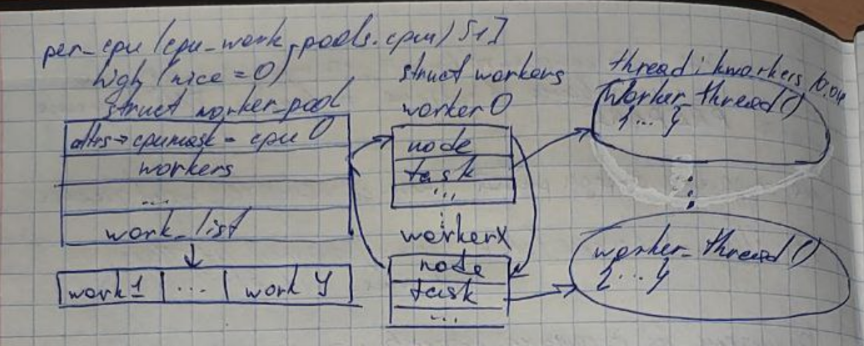 per_cpu (cpu_work_pools.cpu) [1]
high (nice = 0)
struct worker_pool
attrs→cpumask = cpu 0
workers
...
work_list
work1 ... work Y
struct workers
worker 0
node
task
...
worker X
node
task
...
thread: kworkers
worker_thread()
{...}
worker_thread()
{...}